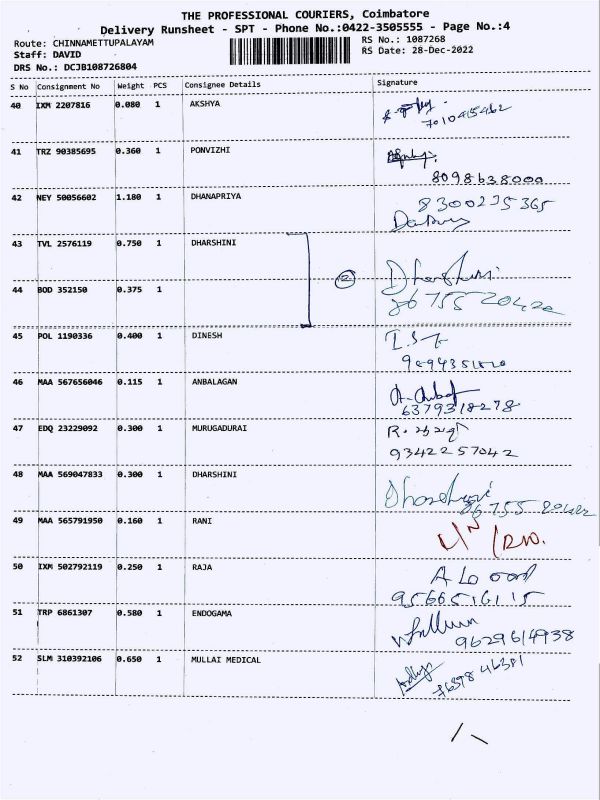 THE PROFESSIONAL COURIERS, Coimbatore
Delivery Runsheet - SPT - Phone No.:0422-3505555 - Page No.:4
Route: CHINNAMETTUPALAYAM RS No.: 1087268
Staff: DAVID RS Date: 28-Dec-2022
DRS No.: DCJB108726804
S No Consignment No Weight PCS Consignee Details Signature
40 IXM 2207816 0.080 1 AKSHYA
41 TRZ 90385695 0.360 1 PONVIZHI
8098638000
42 NEY 50056602 1.180 1 DHANAPRIYA 8300235365
43 TVL 2576119 0.750 1 DHARSHINI
② Dharshini
44 BOD 352150 0.375 1
45 POL 1190336 0.400 1 DINESH
46 MAA 567656046 0.115 1 ANBALAGAN
6379318278
47 EDQ 23229092 0.300 1 MURUGADURAI
9342257042
48 MAA 569047833 0.300 1 DHARSHINI
Dharshini
49 MAA 565791950 0.160 1 RANI
50 IXM 502792119 0.250 1 RAJA
9566516115
51 TRP 6861307 0.580 1 ENDOGAMA
9629614938
52 SLM 310392106 0.650 1 MULLAI MEDICAL